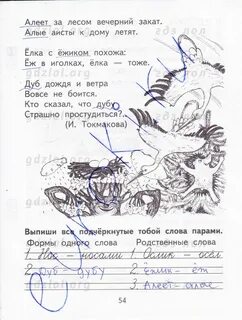 Алеет за лесом вечерний закат.
Алые аисты к дому летят.
Ёлка с ёжиком похожа:
Ёж в иголках, ёлка – тоже.
Дуб дождя и ветра
Вовсе не боится.
Кто сказал, что дубу
Страшно простудиться?
(И. Токмакова)
Выпиши все подчёркнутые тобой слова парами.
Формы одного слова Родственные слова
1. Нос – носами 1. Ослик – осёл
2. Дуб – дубу 2. Ёжик – ёж
3. Алеет – алые
54
gdzlol.org